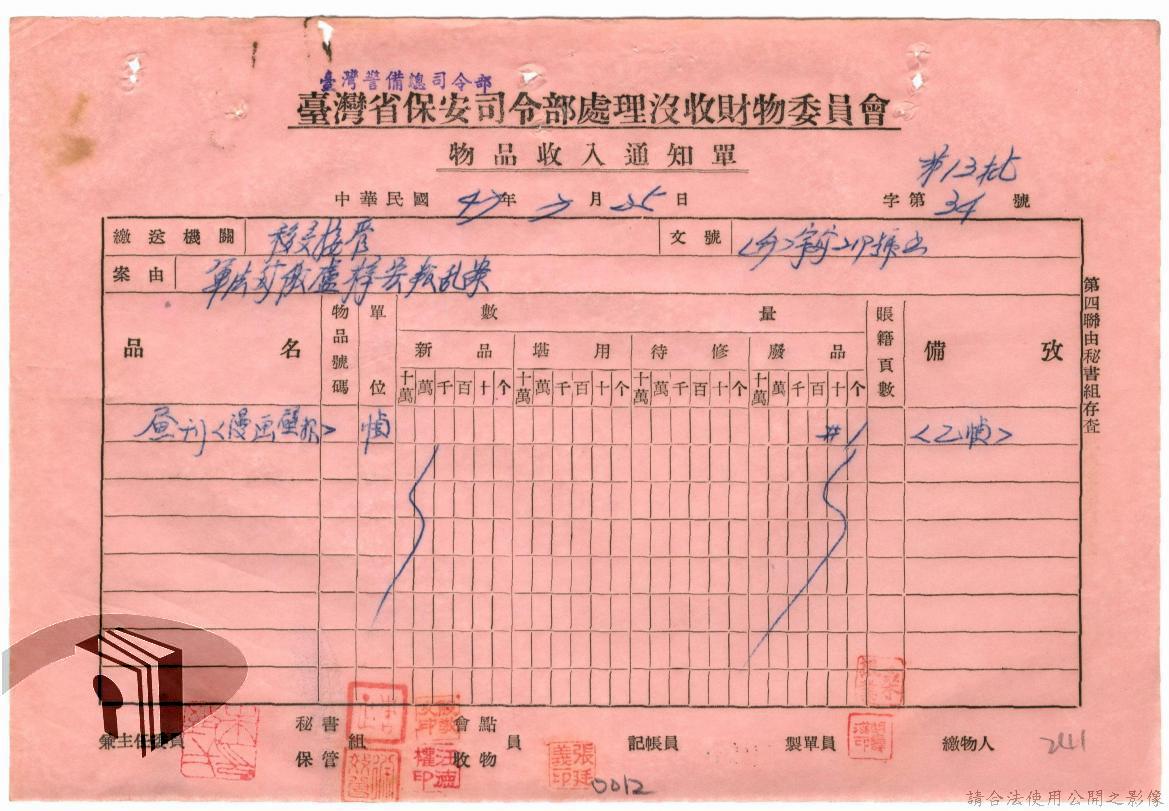 臺灣警備總司令部
臺灣省保安司令部處理沒收財物委員會
物品收入通知單
第13批
中華民國 47年 月 25日 字第 34 號
繳送機關 移交接管 文號
案由
品名 物品號碼 單位 數量 賬籍頁數 備攷
新品 堪用 待修 廢品
十萬 萬 千 百 十 个 十萬 萬 千 百 十 个 十萬 萬 千 百 十 个 十萬 萬 千 百 十 个
刊<漫画壁报> 幀 #1 <乙幀>
第四聯由秘書組存查
兼主任委員 秘書組 保管組 會點員 收物員 記帳員 製單員 繳物人
張廷義印
0012
2411
請合法使用公開之影像